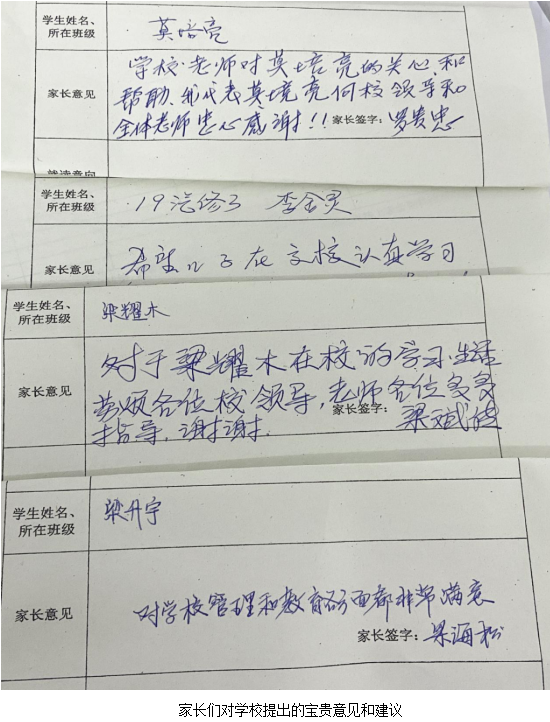 学生姓名、
所在班级
莫培亮
家长意见
学校老师对莫培亮的关心和
帮助.我代表莫境亮向校领导和
全体老师忠心感谢!!家长签字:罗贵忠
就读意向
学生姓名、
所在班级
19汽修3 李金灵
家长意见
希望儿子在文校认真学习
学生姓名、
所在班级
梁耀木
家长意见
对于梁耀木在校的学习.生活
劳烦各位校领导,老师各位多多
指导,谢谢. 家长签字: 梁斌
学生姓名、
所在班级
梁升宇
家长意见
对学校管理和教育方面都非常满意
家长签字:梁海松
家长们对学校提出的宝贵意见和建议